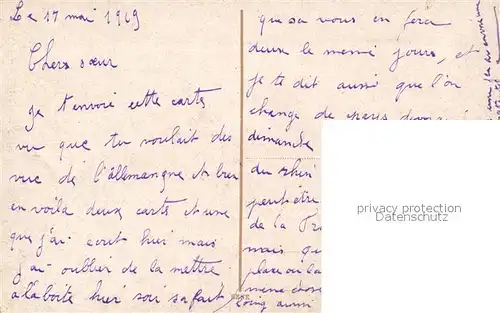 Le 17 mai 1919
Chers sœur
Je t'envoie cette carte
vu que tu voulait des
vue de l'allemangne et bien
en voila deux carte et une
que j'ai ecrit hier mais
j'ai oublier de la mettre
a la boite hier soir sa fait
que sa vous en fera
deux le meme jours, et
je te dit aussi que l'on
change de
dimanche
du rhin
peut être
de la
mais qu
place ou la
meme chose
aussi
privacy protection
Datenschutz